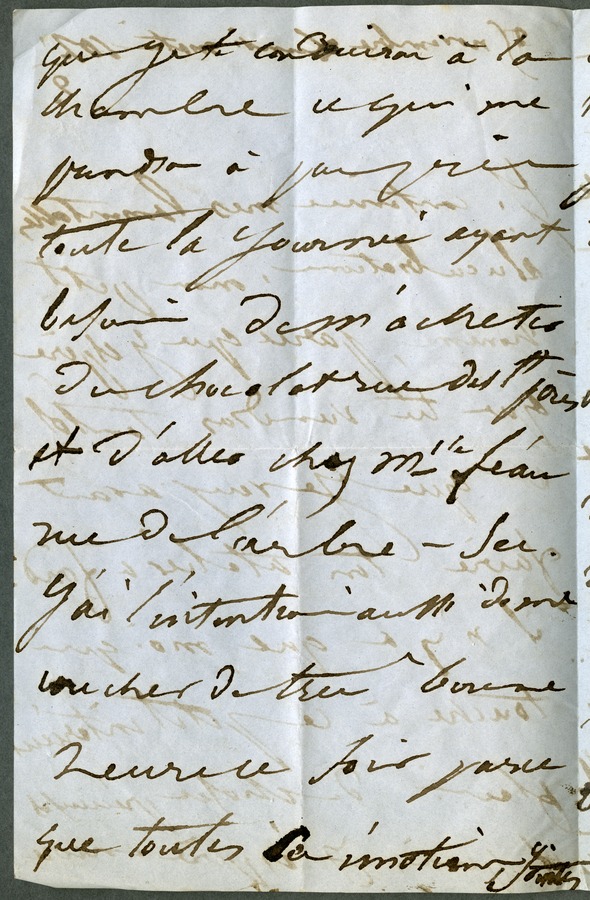 que je te conduirai à la
chambre ce qui me
prendra à peu près
toute la journée ayant
besoin de m'acheter
du chocolat rue des Sts pères
et d'aller chez Mlle
rue de
J'ai l'intention aussi de me
coucher de très bonne
heure ce soir parce
que toutes les émotions